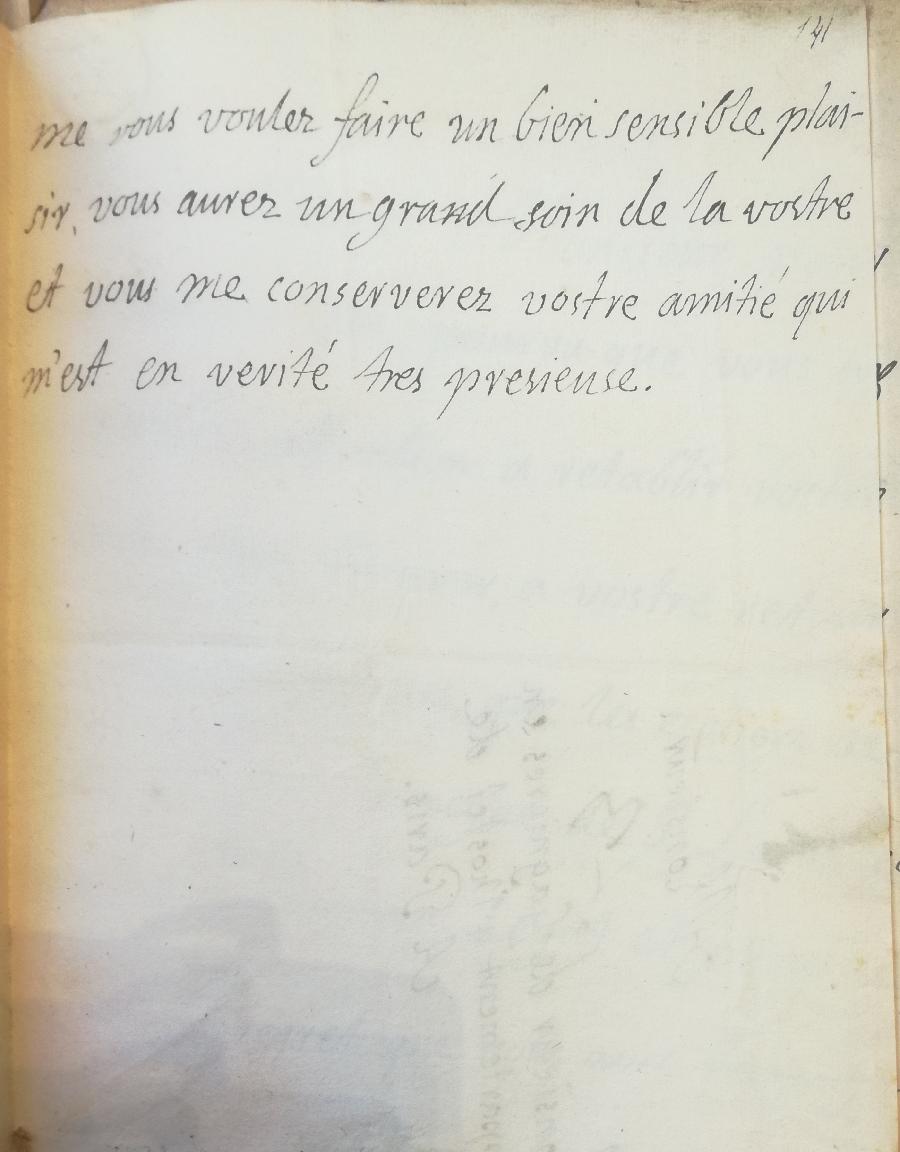 141
me vous voulez faire un bien sensible plai-
sir, vous aurez un grand soin de la vostre
et vous me conserverez vostre amitié qui
m'est en verité tres presieuse.